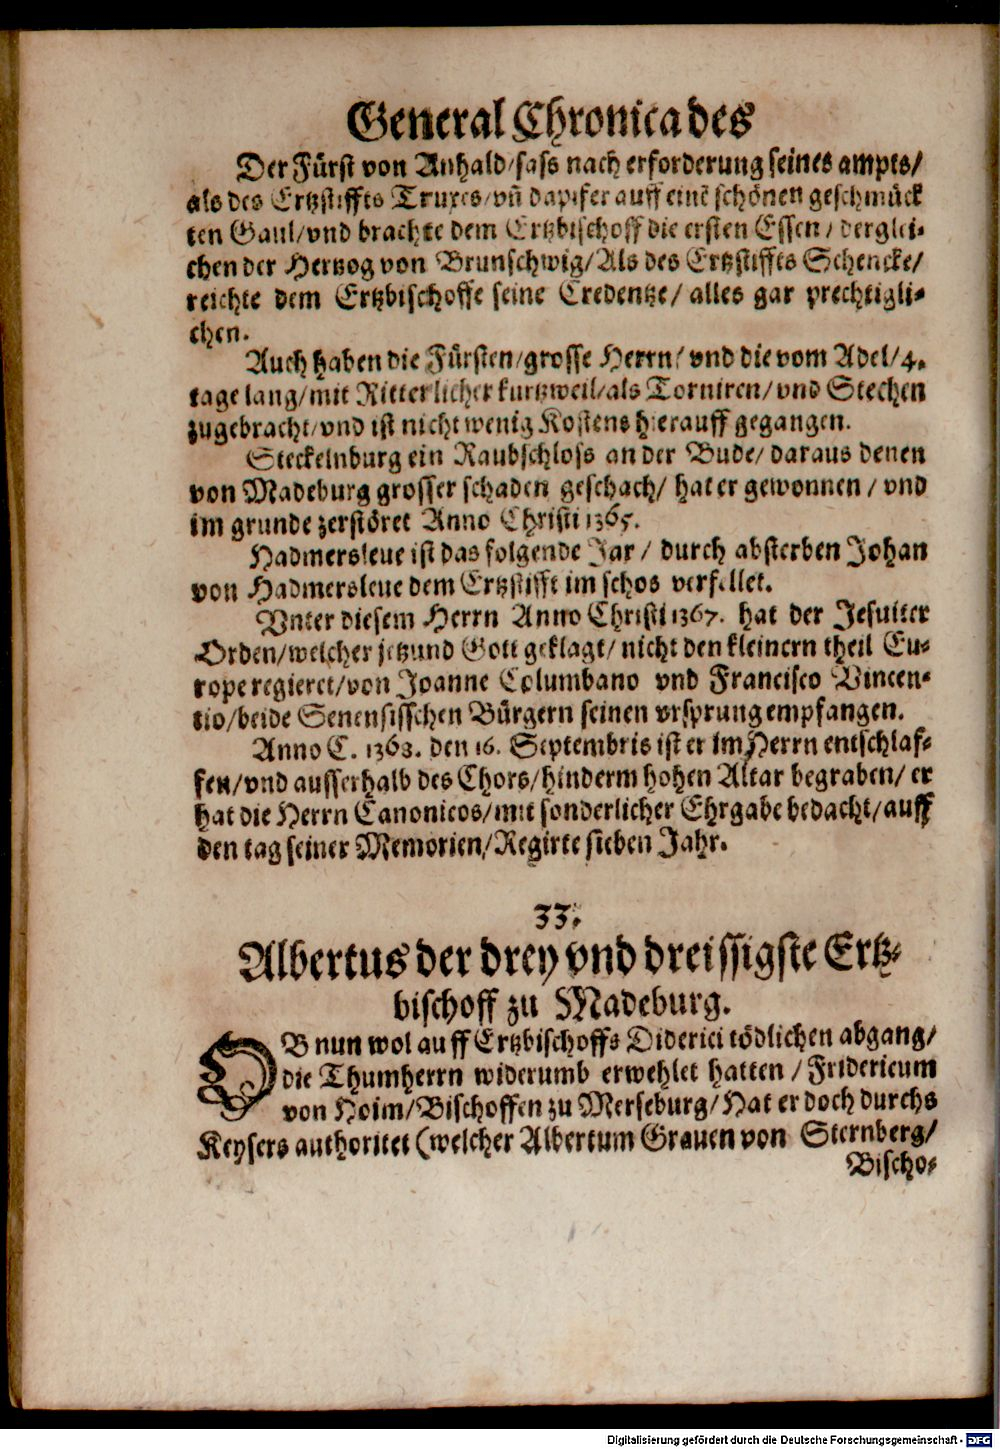 General Chronica des
Der Fürst von Anhald/sass nach erforderung seines ampts/
als des Ertzstiffts Truxes/vñ dapifer auff einẽ schönen geschmück
ten Gaul/vnd brachte dem Ertzbischoff die ersten Essen/ derglei-
chen der Hertzog von Brunschwig/Als des Ertzstiffts Schencke/
reichte dem Ertzbischoffe seine Credentze/ alles gar prechtigli-
chen.
Auch haben die Fürsten/grosse Herrn/ vnd die vom Adel/4.
tage lang/mit Ritterlicher kurtzweil/als Torniren/vnd Stechen
zugebracht/vnd ist nicht wenig Kostens hierauff gegangen.
Steckelnburg ein Raubschloss an der Bude/ daraus denen
von Madeburg grosser schaden geschach/ hat er gewonnen/ vnd
im grunde zerstöret Anno Christi 1365.
Hadmersleue ist das folgende Jar/ durch absterben Johan
von Hadmersleue dem Ertzstifft im schos verfellet.
Vnter diesem Herrn Anno Christi 1367. hat der Jesuiter
Orden/welcher jetzund Gott geklagt/ nicht den kleinern theil Eu-
rope regieret/von Joanne Columbano vnd Francisco Vincen-
tio/beide Senensisschen Bürgern seinen vrsprung empfangen.
Anno C. 1368. den 16. Septembris ist er im Herrn entschlaf-
fen/vnd ausserhalb des Chors/hinderm hohen Altar begraben/ er
hat die Herrn Canonicos/mit sonderlicher Ehrgabe bedacht/auff
den tag seiner Memorien/Regirte sieben Jahr.
33.
Albertus der drey vnd dreissigste Ertz-
bischoff zu Madeburg.
OB nun wol auff Ertzbischoffs Diderici tödlichen abgang/
die Thumherrn widerumb erwehlet hatten/Fridericum
von Hoim/Bischoffen zu Merseburg/Hat er doch durchs
Keysers authoritet (welcher Albertum Grauen von Sternberg/
Bischo-
Digitalisierung gefördert durch die Deutsche Forschungsgemeinschaft - DFG